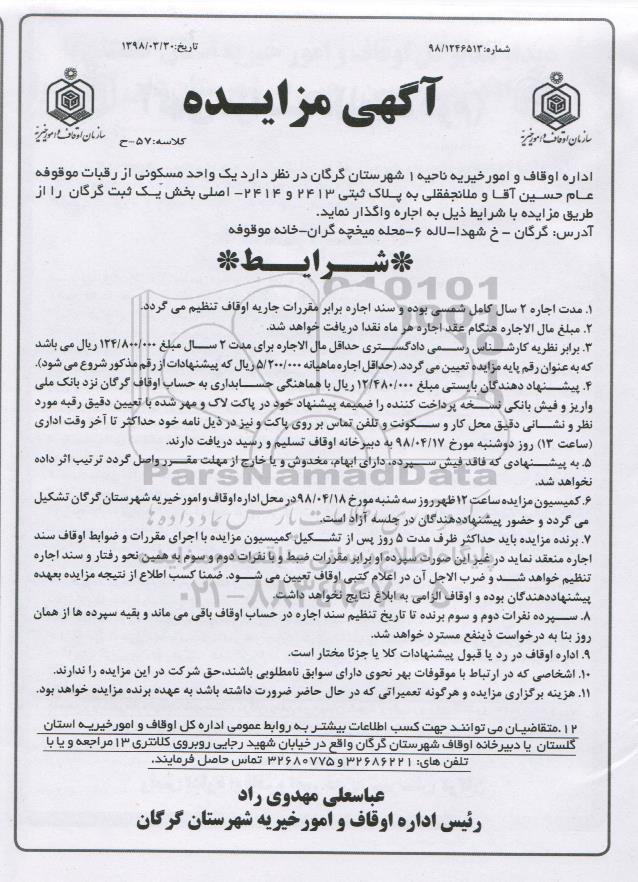 شماره:۹۸/۱۲۴۶۵۱۳
تاریخ:۱۳۹۸/۰۳/۳۰
آگهی مزایده
سازمان اوقاف و امور خیریه
سازمان اوقاف و امور خیریه
کلاسه:۵۷-ح
اداره اوقاف و امورخیریه ناحیه ۱ شهرستان گرگان در نظر دارد یک واحد مسکونی از رقبات موقوفه
عام حسین آقا و ملانجفقلی به پلاک ثبتی ۲۴۱۳ و ۲۴۱۴- اصلی بخش یک ثبت گرگان را از
طریق مزایده با شرایط ذیل به اجاره واگذار نماید.
آدرس: گرگان - خ شهدا-لاله ۶-محله میخچه گران-خانه موقوفه
*شرایط*
۱. مدت اجاره ۲ سال کامل شمسی بوده و سند اجاره برابر مقررات جاریه اوقاف تنظیم می گردد.
۲. مبلغ مال الاجاره هنگام عقد اجاره هر ماه نقدا دریافت خواهد شد.
۳. برابر نظریه کارشناس رسمی دادگستری حداقل مال الاجاره برای مدت ۲ سال مبلغ ۱۲۴/۸۰۰/۰۰۰ ریال می باشد
که به عنوان رقم پایه مزایده تعیین می گردد. (حداقل اجاره ماهیانه ۵/۲۰۰/۰۰۰ ریال که پیشنهادات از رقم مذکور شروع می شود).
۴. پیشنهاد دهندگان بایستی مبلغ ۱۲/۴۸۰/۰۰۰ ریال با هماهنگی حسابداری به حساب اوقاف گرگان نزد بانک ملی
واریز و فیش بانکی نسخه پرداخت کننده را ضمیمه پیشنهاد خود در پاکت لاک و مهر شده با تعیین دقیق رقبه مورد
نظر و نشانی دقیق محل کار و سکونت و تلفن تماس بر روی پاکت و نیز در ذیل نامه خود حداکثر تا آخر وقت اداری
(ساعت ۱۳) روز دوشنبه مورخ ۹۸/۰۴/۱۷ به دبیرخانه اوقاف تسلیم و رسید دریافت دارند.
۵. به پیشنهادی که فاقد فیش سپرده، دارای ابهام، مخدوش و یا خارج از مهلت مقرر واصل گردد ترتیب اثر داده
نخواهد شد.
۶. کمیسیون مزایده ساعت ۱۲ ظهر روز سه شنبه مورخ ۹۸/۰۴/۱۸ در محل اداره اوقاف و امور خیریه شهرستان گرگان تشکیل
می گردد و حضور پیشنهاددهندگان در جلسه آزاد است.
۷. برنده مزایده باید حداکثر ظرف مدت ۵ روز پس از تشکیل کمیسیون مزایده با اجرای مقررات و ضوابط اوقاف سند
اجاره منعقد نماید در غیر این صورت سپرده او برابر مقررات ضبط و با نفرات دوم و سوم به همین نحو رفتار و سند اجاره
تنظیم خواهد شد و ضرب الاجل آن در اعلام کتبی اوقاف تعیین می شود. ضمنا کسب اطلاع از نتیجه مزایده بعهده
پیشنهاددهندگان بوده و اوقاف الزامی به ابلاغ نتایج نخواهد داشت.
۸. سپرده نفرات دوم و سوم برنده تا تاریخ تنظیم سند اجاره در حساب اوقاف باقی می ماند و بقیه سپرده ها از همان
روز بنا به درخواست ذینفع مسترد خواهد شد.
۹. اداره اوقاف در رد یا قبول پیشنهادات کلا یا جزئا مختار است.
۱۰. اشخاصی که در ارتباط با موقوفات بهر نحوی دارای سوابق نامطلوبی باشند،حق شرکت در این مزایده را ندارند.
۱۱. هزینه برگزاری مزایده و هرگونه تعمیراتی که در حال حاضر ضرورت داشته باشد به عهده برنده مزایده خواهد بود.
۱۲.متقاضیان می توانند جهت کسب اطلاعات بیشتر به روابط عمومی اداره کل اوقاف و امورخیریه استان
گلستان یا دبیرخانه اوقاف شهرستان گرگان واقع در خیابان شهید رجایی روبروی کلانتری ۱۳مراجعه و یا با
تلفن های: ۳۲۶۸۶۲۲۱ و ۳۲۶۸۰۷۷۵ تماس حاصل فرمایند.
عباسعلی مهدوی راد
رئیس اداره اوقاف و امورخیریه شهرستان گرگان
ParsNamadData